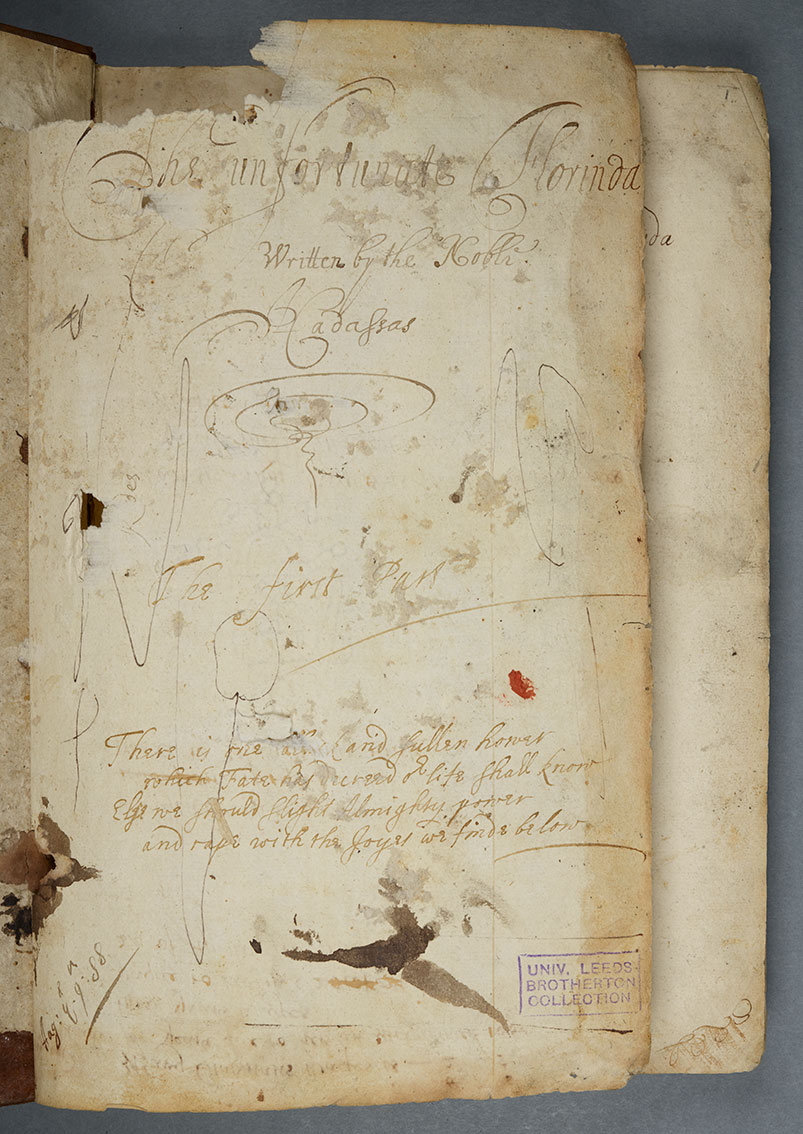 The unfortunate Florinda
Written by the Noble
Hadassas
The first Part
There is one and sullen hower
which Fate has decreed or life shall know
Else we should slight Almighty power
and rape with the Joyes we finde below
1
da
des
pag: 88
UNIV. LEEDS
BROTHERTON
COLLECTION